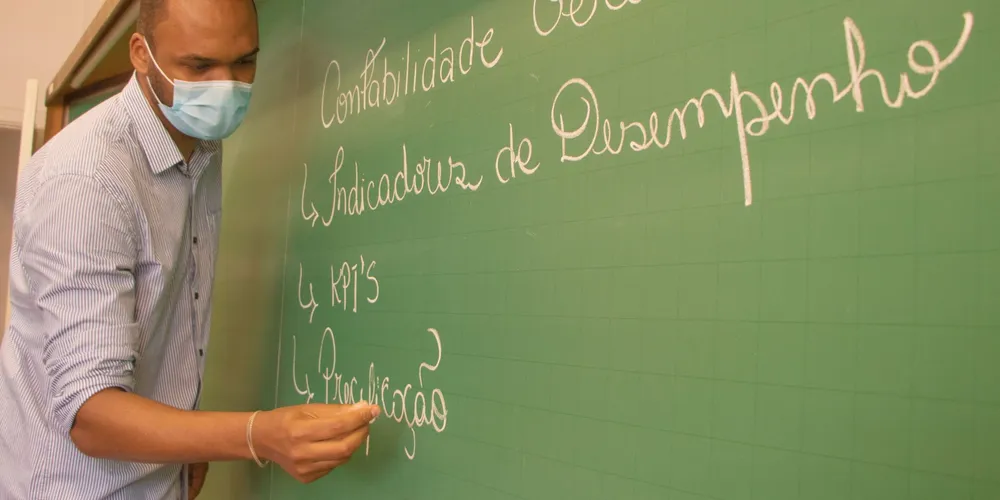 Contabilidade
↳ Indicadores de Desempenho
↳ KPI'S
↳ Precificação